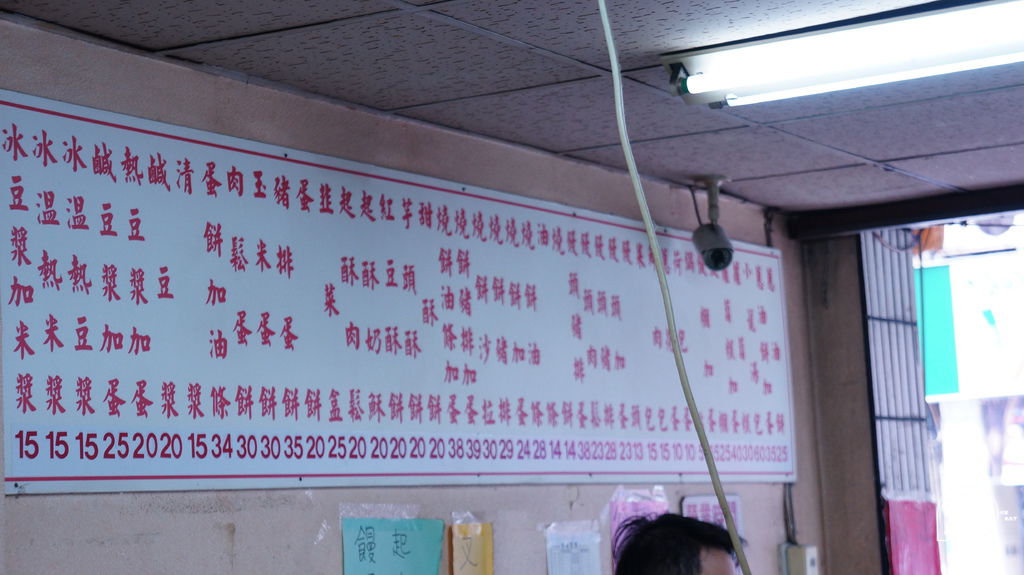 冰豆漿加米漿 15
冰溫熱米漿 15
冰溫熱豆漿 15
鹹豆漿加蛋 25
熱豆漿加蛋 20
鹹豆漿 20
清漿 15
蛋餅加油條 34
肉鬆蛋餅 30
玉米蛋餅 30
豬排蛋餅 35
蛋餅 20
韭菜盒 25
起酥肉鬆 20
起酥奶酥 20
紅豆酥餅 20
芋頭酥餅 20
甜酥餅 20
燒餅油條加蛋 38
燒餅豬排加蛋 39
燒餅沙拉 30
燒餅豬排 29
燒餅加蛋 24
燒餅油條 28
油條 14
燒餅 14
饅頭豬排蛋 38
饅頭肉鬆 23
饅頭豬排 28
饅頭加蛋 23
饅頭 13
菜包 15
肉包 15
荷包蛋 10
饅 起